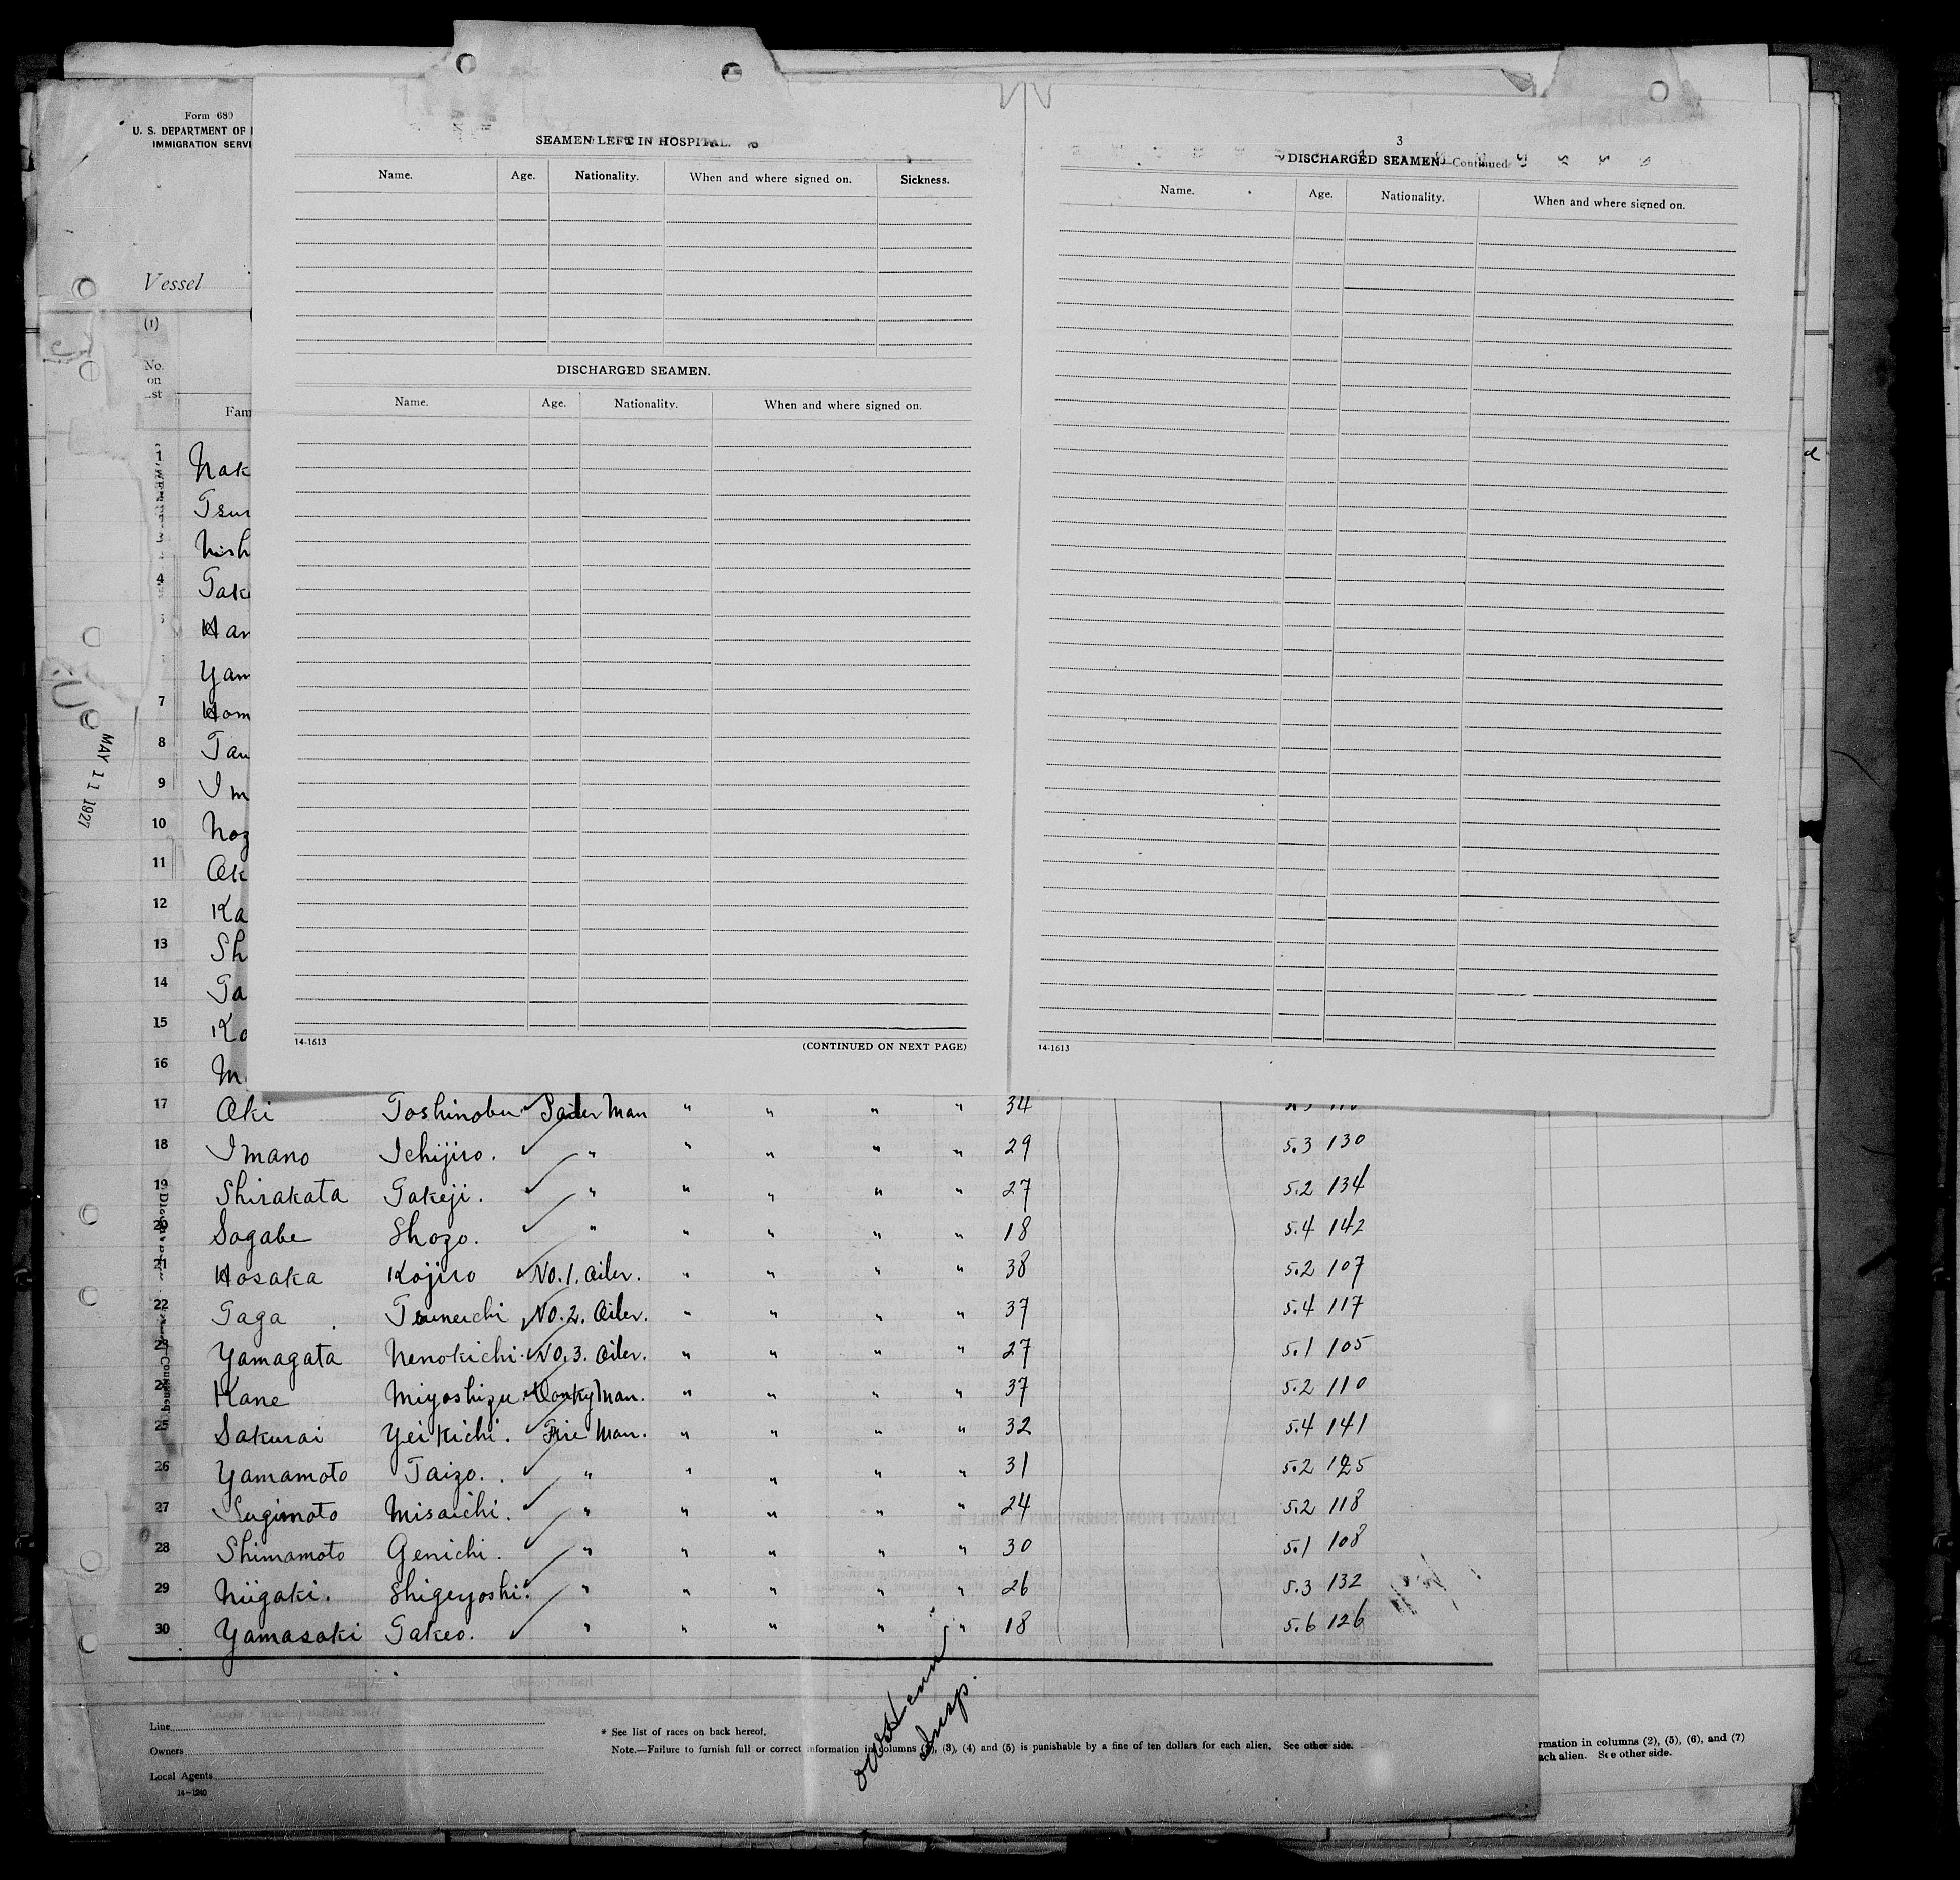 Form 689
U. S. DEPARTMENT OF
IMMIGRATION SERVI
Vessel
(1)
No.
on
st
Fam
1 Nak
Tsur
Nish
4 Take
Han
Yam
7 Hom
8 Tan
9 Im
10 Noz
11 Ok
12 Ka
13 Sh
14 Ta
15 Ko
16 M
MAY 11 1927
SEAMEN LEFT IN HOSPITAL.
Name. Age. Nationality. When and where signed on. Sickness.
DISCHARGED SEAMEN.
Name. Age. Nationality. When and where signed on.
14-1613 (CONTINUED ON NEXT PAGE)
3
DISCHARGED SEAMEN—Continued
Name. Age. Nationality. When and where signed on.
14-1613
17 Oki Toshinobu Sailer Man " " " " 34
18 Imano Ichijiro. " " " " " 29 5.3 130
19 Shirakata Takeji. " " " " " 27 5.2 134
20 Sogabe Shozo. " " " " " 18 5.4 142
21 Hosaka Kojiro No. 1. Oiler. " " " " 38 5.2 107
22 Taga Tsuneichi No. 2. Oiler. " " " " 37 5.4 117
23 Yamagata Nenokichi. No. 3. Oiler. " " " " 27 5.1 105
24 Kane Miyoshizu Donky Man. " " " " 37 5.2 110
25 Sakurai Yeikichi. Fire Man. " " " " 32 5.4 141
26 Yamamoto Taizo. " " " " " 31 5.2 125
27 Sugimoto Misaichi. " " " " " 24 5.2 118
28 Shimamoto Genichi. " " " " " 30 5.1 108
29 Niigaki. Shigeyoshi. " " " " " 26 5.3 132
30 Yamasaki Takeo. " " " " " 18 5.6 126
Insp.
Line
Owners
Local Agents
14-1240
* See list of races on back hereof.
Note.—Failure to furnish full or correct information in columns (2), (3), (4) and (5) is punishable by a fine of ten dollars for each alien. See other side.
rmation in columns (2), (5), (6), and (7)
ach alien. See other side.